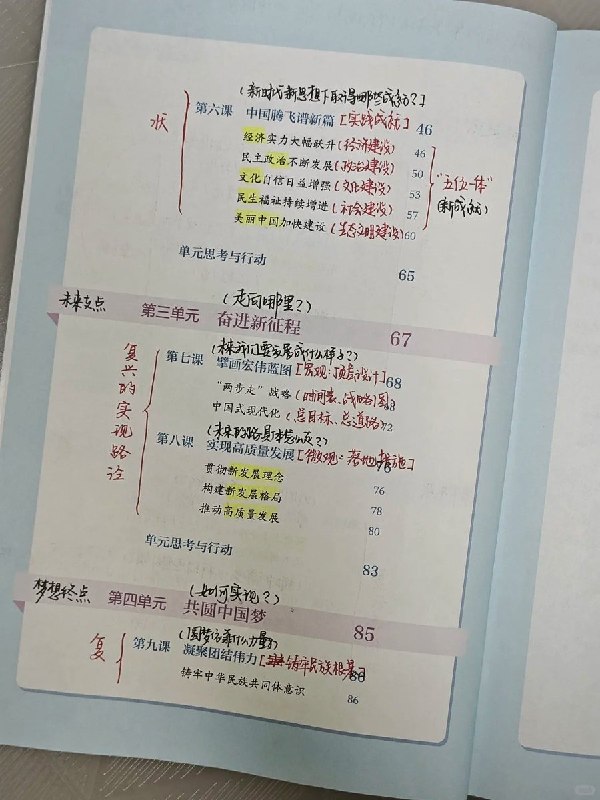 (新时代新思想下取得哪些成就?]
第六课 中国腾飞谱新篇 [实践成就] 46
状
经济实力大幅跃升(经济建设) 46
民主政治不断发展(政治建设) 50
文化自信日益增强(文化建设) 53
民生福祉持续增进(社会建设) 57
美丽中国加快建设(生态文明建设)60
"五位一体"
(新成就)
单元思考与行动 65
未来支点 (走向哪里?)
第三单元 奋进新征程 67
(未来我们要发展成什么样子?)
第七课 擘画宏伟蓝图[宏观:顶层设计]68
"两步走"战略(时间表、战略图)
中国式现代化(总目标、总道路)72
复兴的实现路径
(未来的路具体怎么走?)
第八课 实现高质量发展[微观:落地措施]
贯彻新发展理念 76
构建新发展格局 78
推动高质量发展 80
单元思考与行动 83
梦想终点 (如何实现?)
第四单元 共圆中国梦 85
第九课 凝聚团结伟力[铸牢民族根基]86
复
铸牢中华民族共同体意识 86